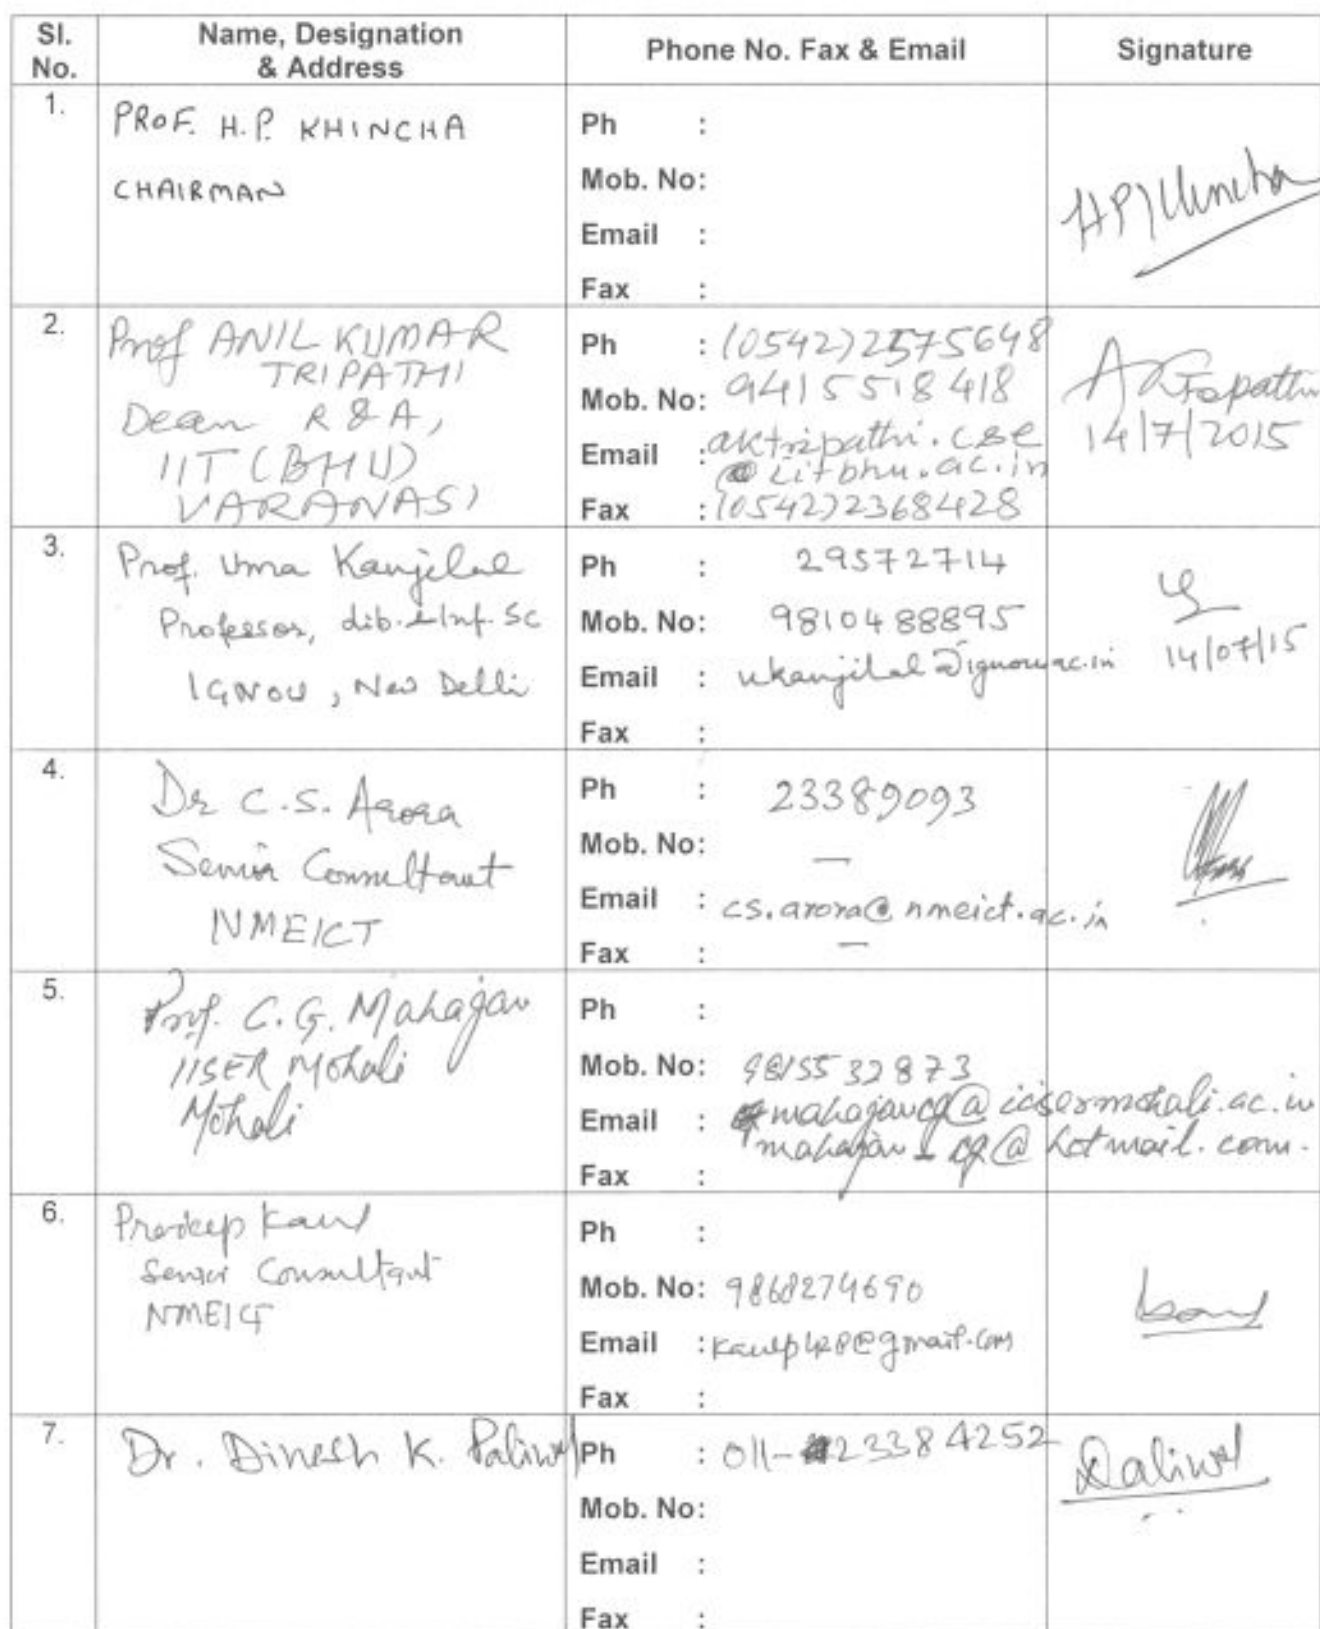 Sl. No.
Name, Designation & Address
Phone No. Fax & Email
Signature
1.
PROF. H.P. KHINCHA
CHAIRMAN
Ph :
Mob. No:
Email :
Fax :
HPKhincha
2.
Prof ANIL KUMAR
TRIPATHI
Dean R & A,
IIT (BHU)
VARANASI
Ph : (0542)2575648
Mob. No: 9415518418
Email : aktripathi.cse
@iitbhu.ac.in
Fax : (0542)2368428
AKTripathi
14/7/2015
3.
Prof. Uma Kanjilal
Professor, Lib. & Inf. Sc
IGNOU, New Delhi
Ph : 29572714
Mob. No: 9810488895
Email : ukanjilal@ignou.ac.in
Fax :
14/07/15
4.
Dr C.S. Arora
Senior Consultant
NMEICT
Ph : 23389093
Mob. No: —
Email : cs.arora@nmeict.ac.in
Fax : —
5.
Prof. C.G. Mahajan
IISER Mohali
Mohali
Ph :
Mob. No: 9815532873
Email : mahajancg@iisermohali.ac.in
mahajan_cg@hotmail.com.
Fax :
6.
Pradeep Kaul
Senior Consultant
NMEICT
Ph :
Mob. No: 9868274690
Email :
Fax :
Kaul
7.
Dr. Dinesh K. Paliwal
Ph : 011-23384252
Mob. No:
Email :
Fax :
Paliwal